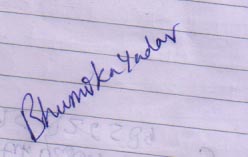 Bhumika Yadav